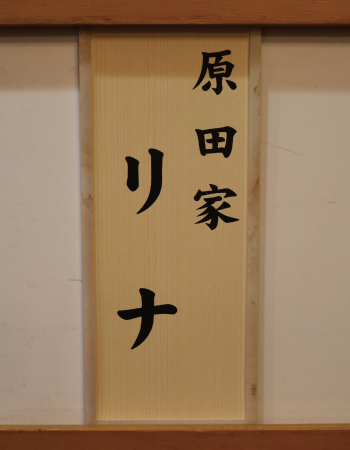 原田家
リナ